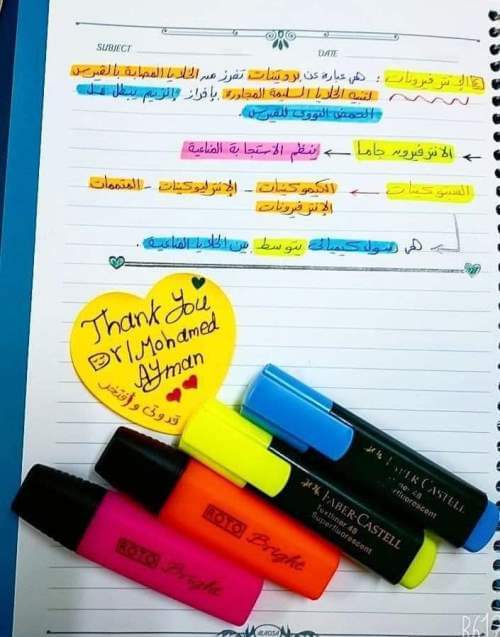 SUBJECT DATE
الإنترفيرونات : هي عبارة عن بروتينات تفرز من الخلايا المصابة بالفيرس
لتنبيه الخلايا السليمة المجاورة بإفراز إنزيم يبطل عمل
الحمض النووي للفيرس.
← الانترفيرون جاما ← ينظم الاستجابة المناعية
السيتوكينات ← الكيموكينات - الإنترليوكينات - المتممات
الإنترفيرونات
هي رسول كيميائي يتوسط بين الخلايا المناعية.
Thank You
Dr/Mohamed
Ayman
قدوتي وأفتخر
FABER-CASTELL
Textliner 48
Superfluorescent
FABER-CASTELL
liner 48
Superfluorescent
ROTO Bright
ROTO Bright